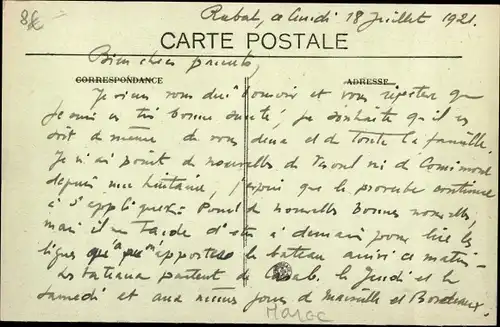 8€
Rabat, ce lundi 18 Juillet 1921.
CARTE POSTALE
Bien chers parents,
CORRESPONDANCE
ADRESSE
Je viens vous dire bonsoir et vous répéter que
je suis en très bonne santé, je souhaite qu'il en
soit de même de vous deux et de toute la famille.
Je n'ai point de nouvelles de Vesoul ni de
depuis une huitaine, j'espère que le proverbe continue
à s'appliquer: Point de nouvelles bonnes nouvelles,
mais il me tarde d'être à demain pour lire les
lignes qu'a apportées le bateau arrivé ce matin.
Les bateaux partent de Casab. le Jeudi et le
Samedi et aux mêmes jours de Marseille et Bordeaux.
MAROC